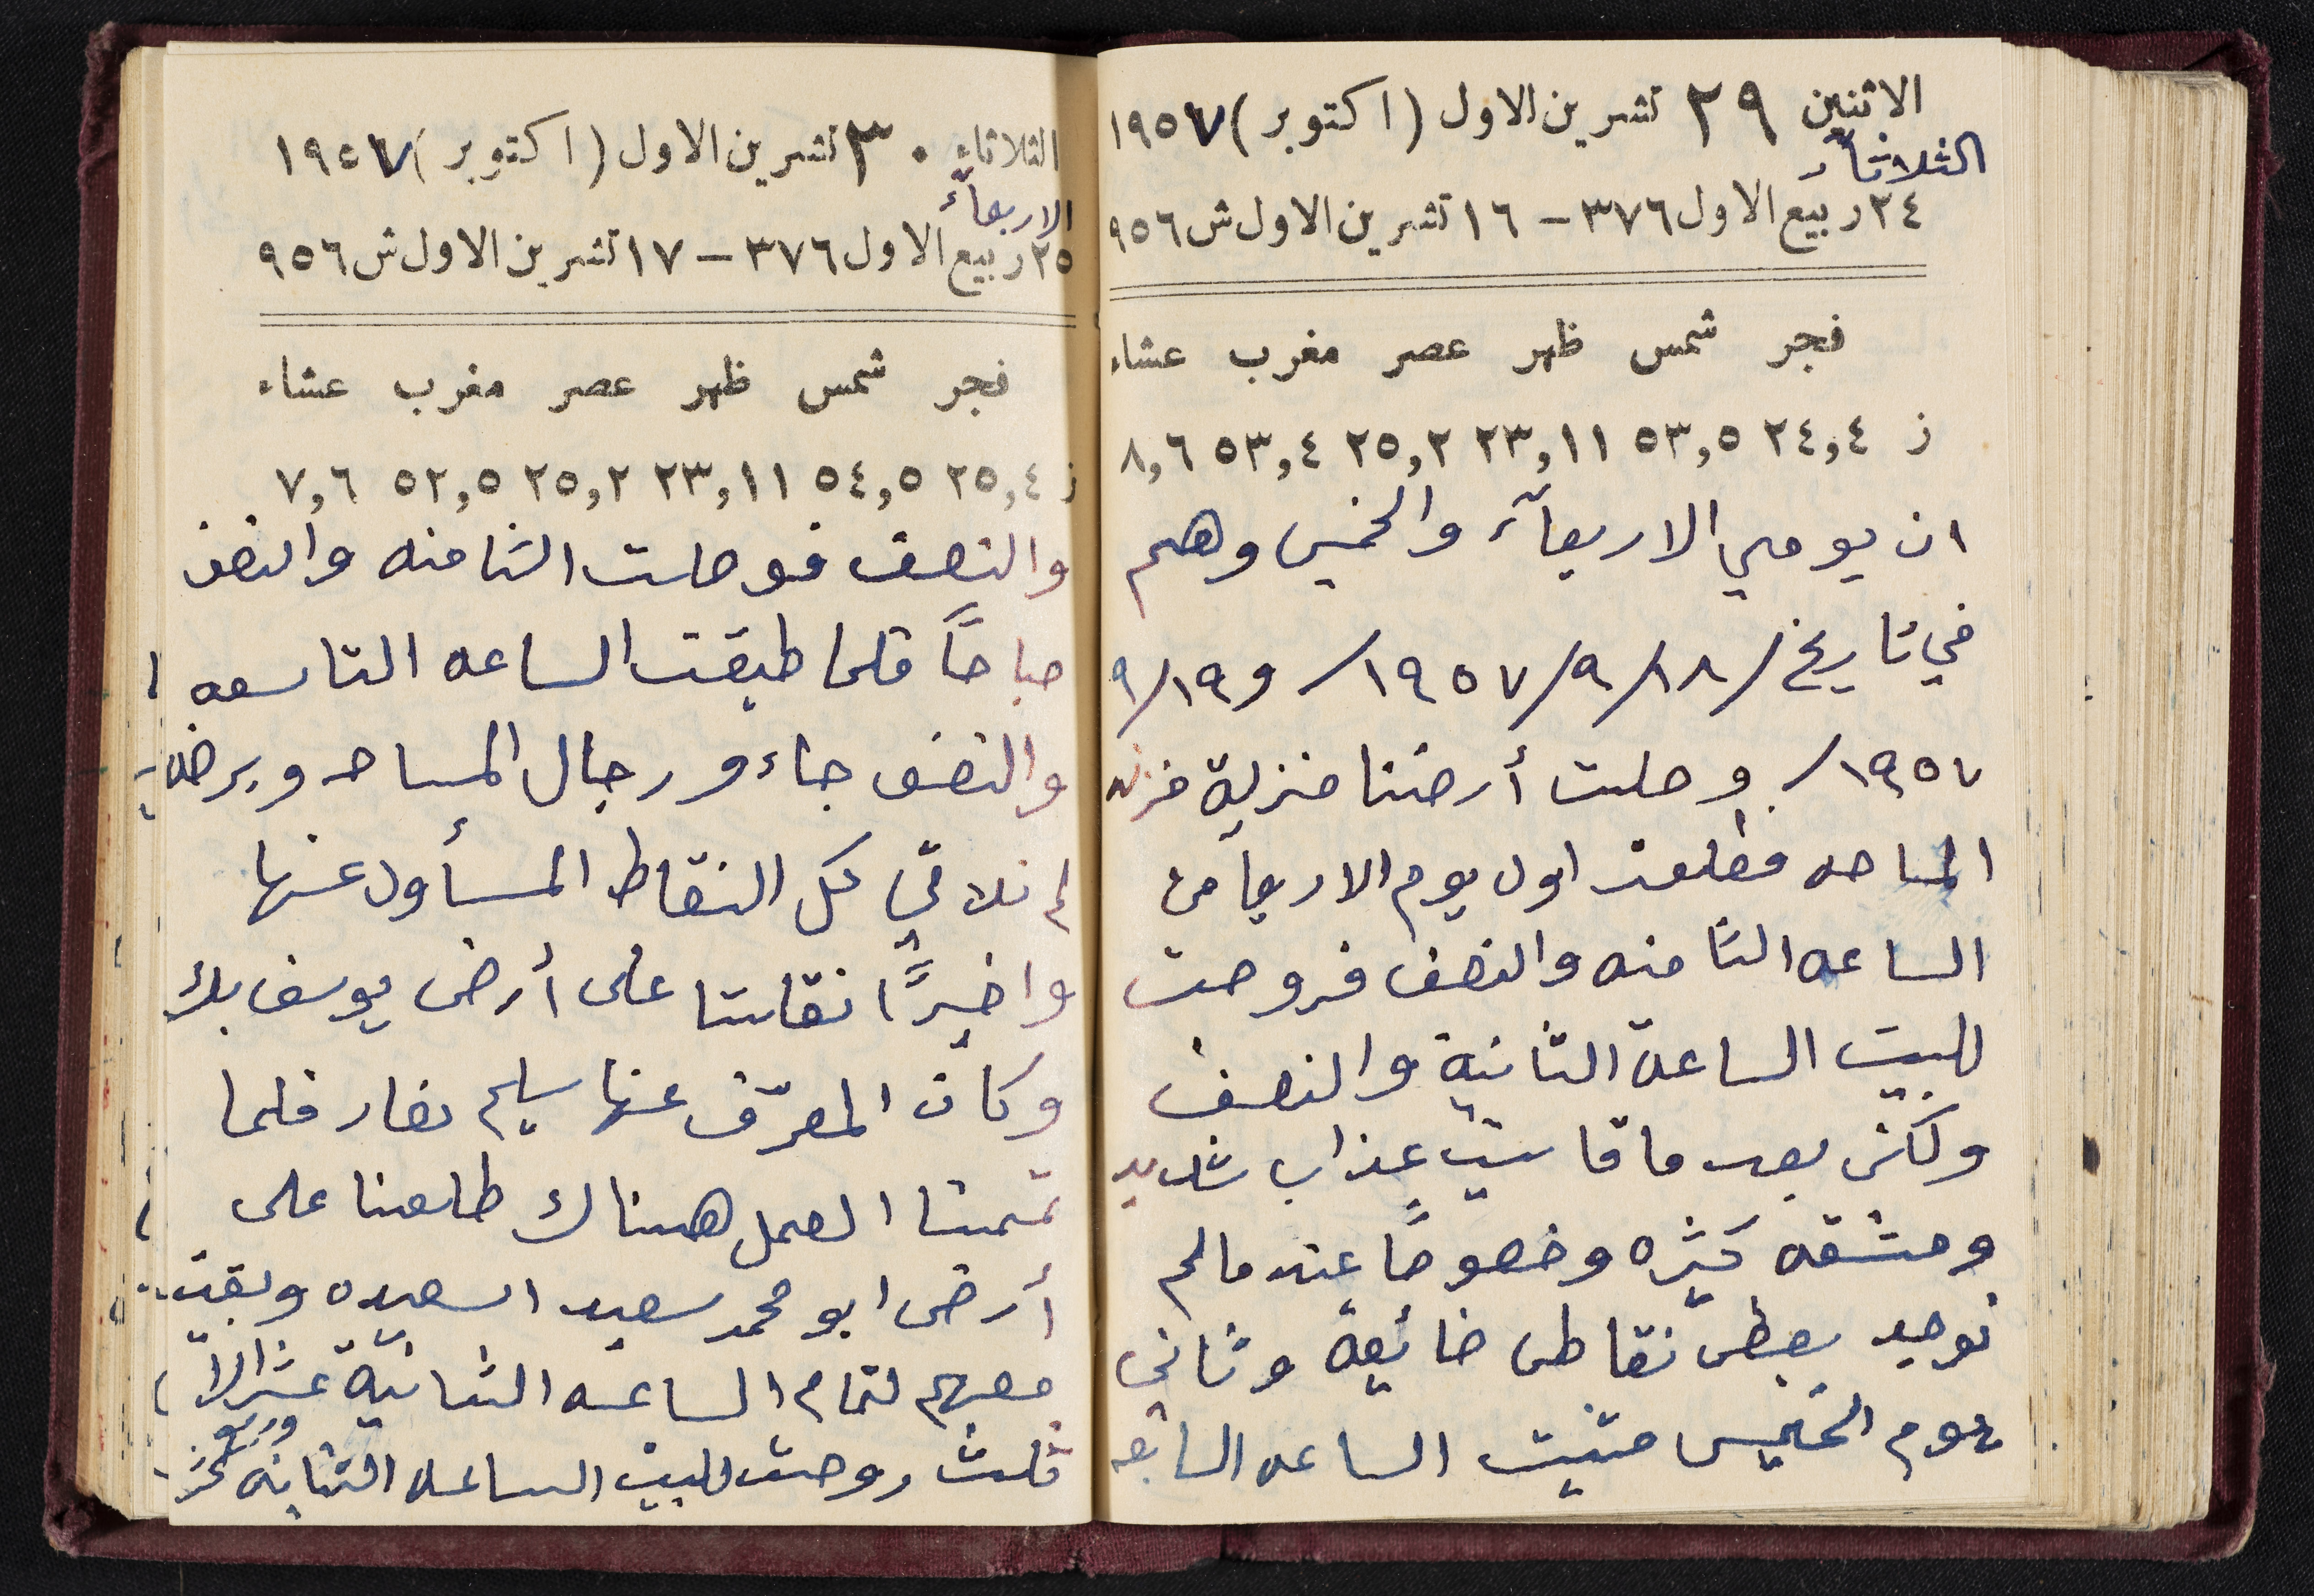 الاثنين ٢٩ تشرين الاول (اكتوبر) ١٩٥٧
الثلاثآء
٢٤ ربيع الاول ٣٧٦ - ١٦ تشرين الاول ش ٩٥٦
فجر شمس ظهر عصر مغرب عشاء
ز ٢٤,٤ ٥٣,٥ ٢٣,١١ ٢٥,٢ ٥٣,٤ ٨,٦
ان يومي الاربعآء والخميس وهم
في تاريخ /١٨/٩/١٩٥٧/ و ٩/١٩
١٩٥٧/ وصلت أرضنا منزلة
المساحه فطلعت اول يوم الاربعا من
الساعه الثامنه والنصف فروحت
للبيت الساعة الثانية والنصف
ولكن بعد ما قاسيت عذاب شديد
ومشقه كثيره وخصوصًا عندما لم
نوجد بعض نقاط ضائعة وثاني
يوم الخميس مشيت الساعه السابعه
الثلاثاء ٣٠ تشرين الاول (اكتوبر) ١٩٥٧
الاربعآء
٢٥ ربيع الاول ٣٧٦ - ١٧ تشرين الاول ش ٩٥٦
فجر شمس ظهر عصر مغرب عشاء
ز ٢٥,٤ ٥٤,٥ ٢٣,١١ ٢٥,٢ ٥٢,٥ ٧,٦
والنصف فوصلت الثامنه والنصف
صباحًا فلما طبقت الساعه التاسعه
والنصف جاءو رجال المساحه
لم نلاقي كل النقاط المسأول عنها
واخيرًا نقلتنا على أرض يوسف بك
وكان المعرّف عنها سليم نصار فلما
تممنا العمل هناك طلعنا على
أرض ابو محمد سعيد السعيده وبقيت
معهم لتمام الساعه الثانية عشر الا
ثلث روحت للبيت الساعه الثانيه
وربع